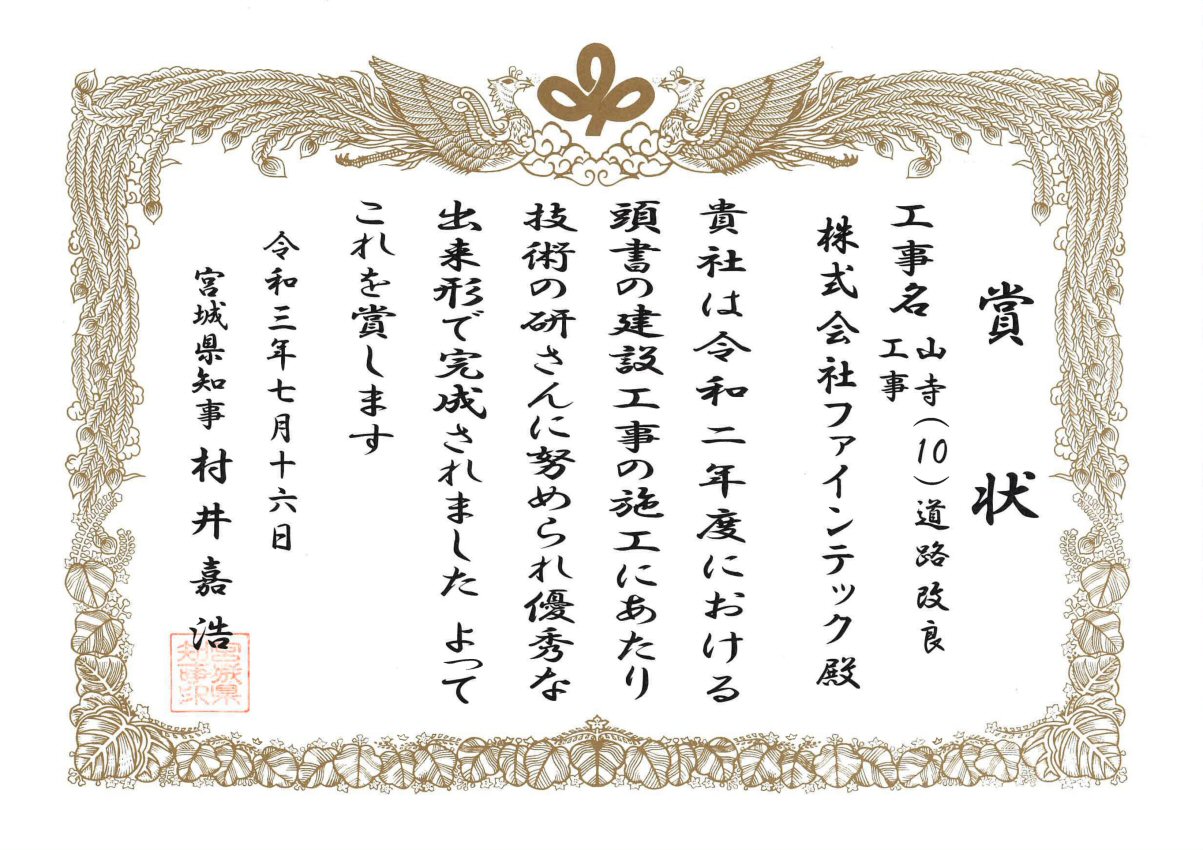 賞状
工事名 山寺（10）道路改良
工事
株式会社ファインテック殿
貴社は令和二年度における
頭書の建設工事の施工にあたり
技術の研さんに努められ優秀な
出来形で完成されました よって
これを賞します
令和三年七月十六日
宮城県知事 村井嘉浩
宮城県
知事印